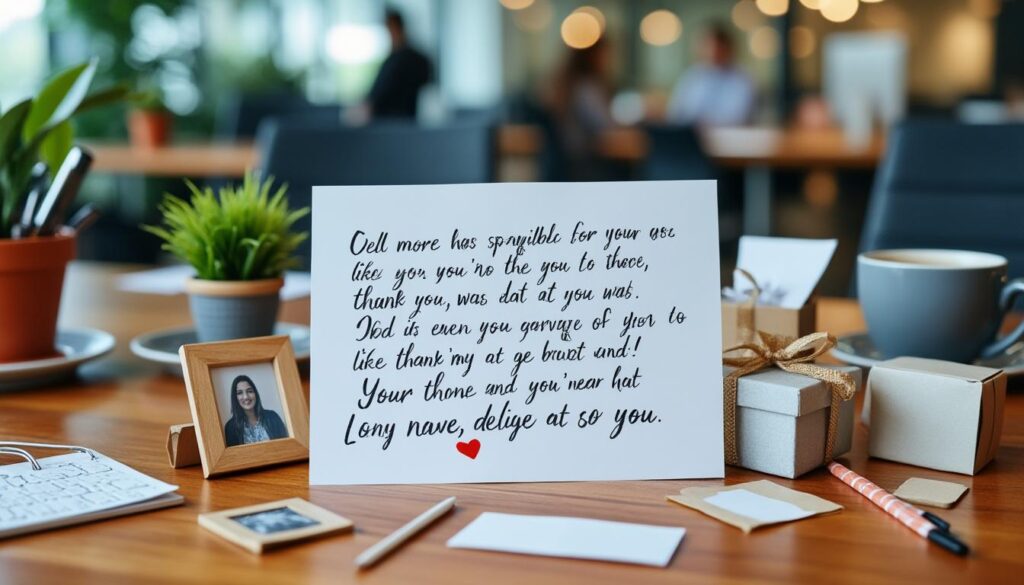 Oell more has spngilble for your use
like you. you'no the you to thoce,
thank you, was dat at you was.
Jbd is enen you garvage of yon to
like thank'my at ge brozt und!
Your thone and you'near hat
Lony nave, delige at so you.